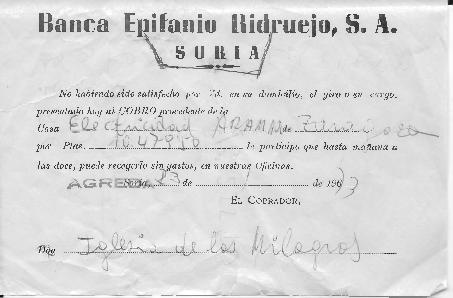 Banca Epifanio Ridruejo, S. A.
SORIA
No habiendo sido satisfecho por Vd. en su domicilio, el giro a su cargo,
presentado hoy al COBRO procedente de la
Casa Electricidad ARAMA de
por Ptas. le participo que hasta mañana a
las doce, puede recogerlo sin gastos, en nuestras Oficinas.
AGREDA
Soria, 23 de de 196
EL COBRADOR,
Don Iglesia de los Milagros